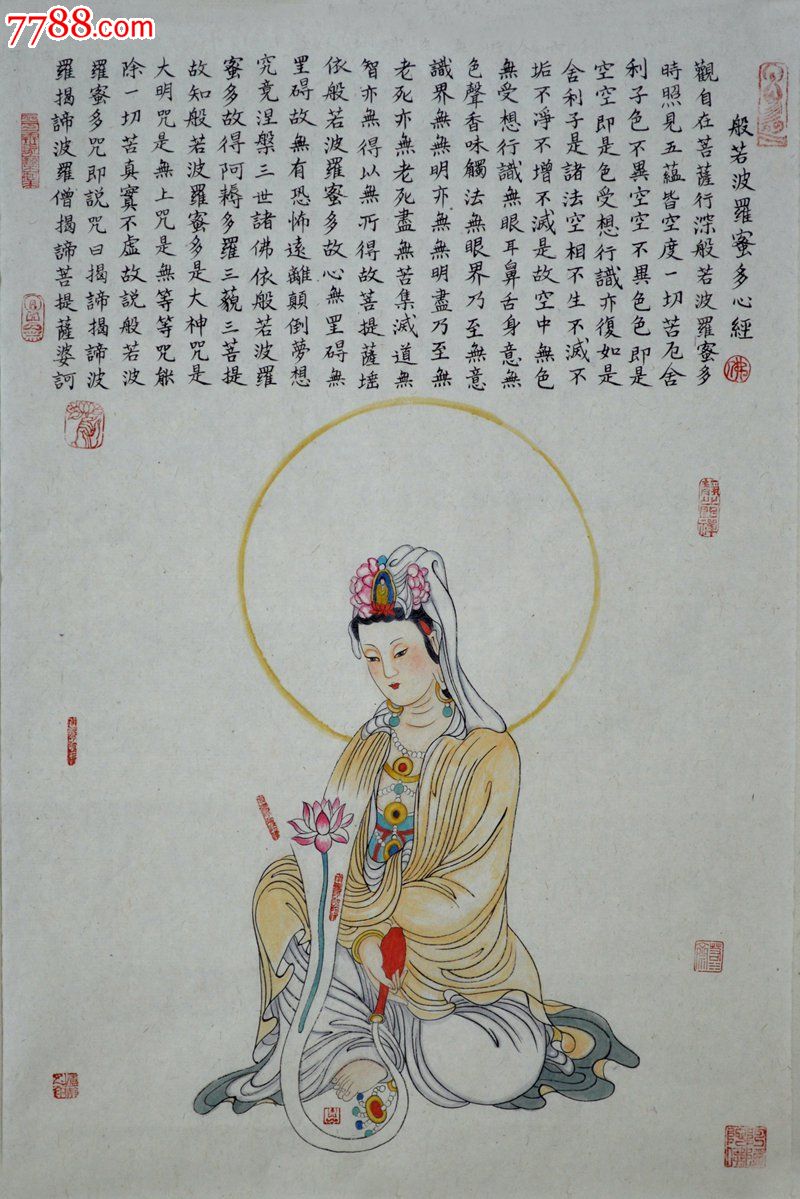 7788.com
般若波羅蜜多心經
佛
觀自在菩薩行深般若波羅蜜多
時照見五蘊皆空度一切苦厄舍
利子色不異空空不異色色即是
空空即是色受想行識亦復如是
舍利子是諸法空相不生不滅不
垢不淨不增不減是故空中無色
無受想行識無眼耳鼻舌身意無
色聲香味觸法無眼界乃至無意
識界無無明亦無無明盡乃至無
老死亦無老死盡無苦集滅道無
智亦無得以無所得故菩提薩埵
依般若波羅蜜多故心無罣碍無
罣碍故無有恐怖遠離顛倒夢想
究竟涅槃三世諸佛依般若波羅
蜜多故得阿耨多羅三藐三菩提
故知般若波羅蜜多是大神咒是
大明咒是無上咒是無等等咒能
除一切苦真實不虛故説般若波
羅蜜多咒即説咒曰揭諦揭諦波
羅揭諦波羅僧揭諦菩提薩婆訶